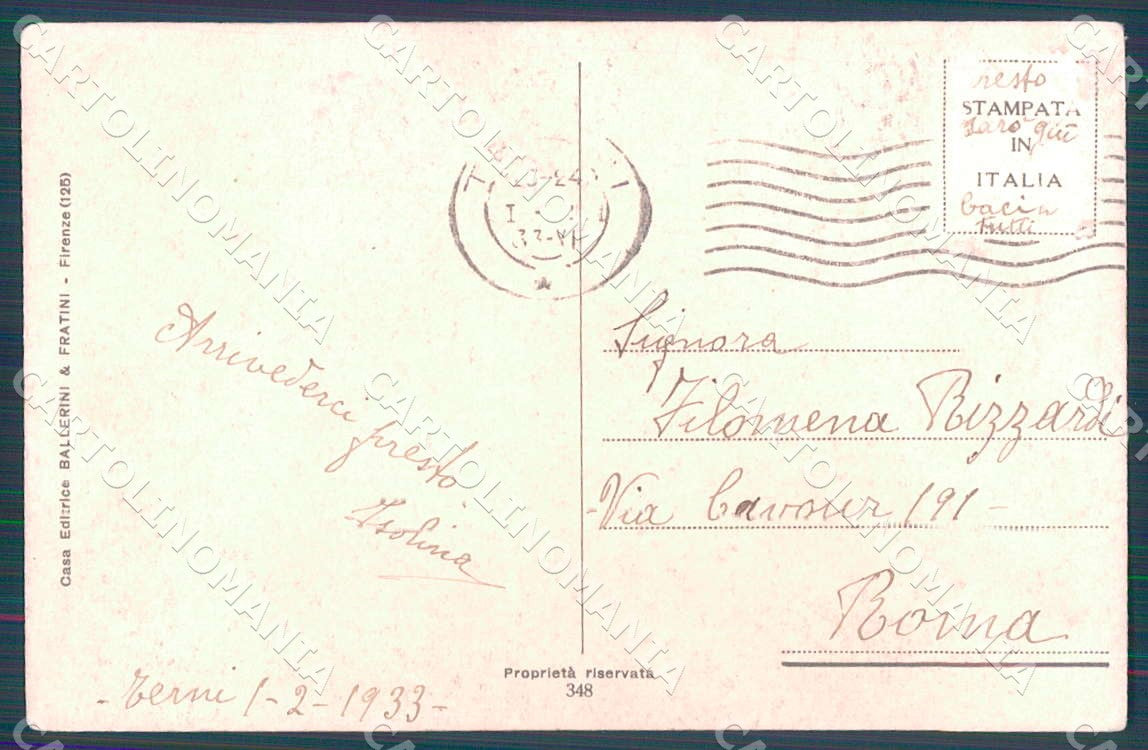 Casa Editrice BALLERINI & FRATINI - Firenze (125)
Arrivederci presto
Isolina
- Terni 1-2-1933 -
Proprietà riservata
348
presto
STAMPATA
sarò qui
IN
ITALIA
baci a
tutti
Signora
Filomena Rizzardi
- Via Cavour 191 -
Roma
CARTOLINOMANIA